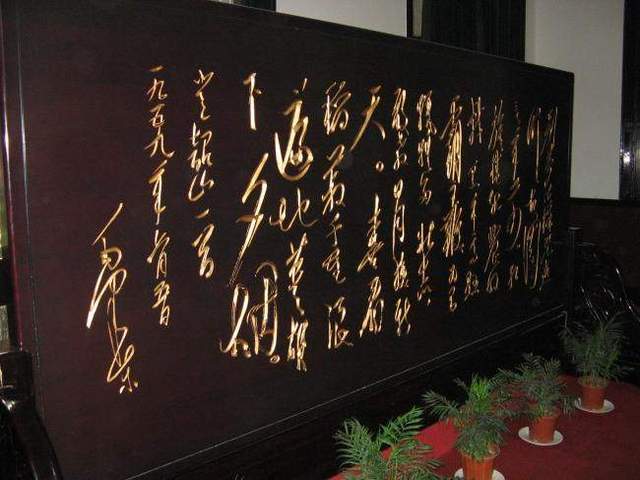 别梦依稀咒逝
川故园
三十二年前红
旗卷起农奴
戟黑手高悬
霸主鞭为有
牺牲多壮志
敢教日月换新
天。喜看
稻菽千重浪
遍地英雄
下夕烟
登韶山一首
一九五九年
毛泽东